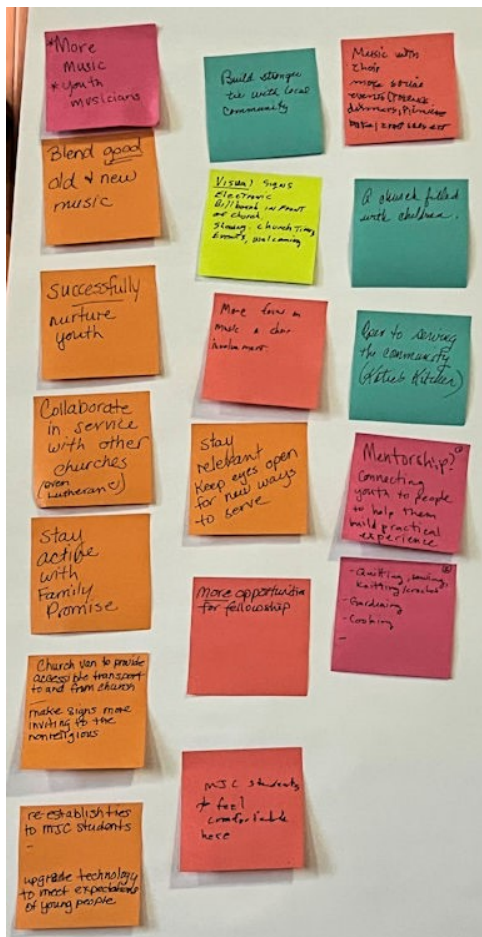 *More
Music
*Youth
musicians
Blend good
old & new
music
Successfully
nurture
youth
Collaborate
in service
with other
churches
(even
Lutherans)
Stay
active
with
Family
Promise
Church van to provide
accessible transport
to and from church
—
make signs more
inviting to the
nonreligious
re-establish ties
to MJC students
-
upgrade technology
to meet expectations
of young people
Build stronger
tie with local
community
Visual Signs
Electronic
Billboard in Front
of church.
Showing: church Time,
Events, welcoming
More focus on
music & choir
involvement.
Stay
relevant
Keep eyes open
for new ways
to serve
More opportunities
for fellowship
MJC students
feel
comfortable
here
Music with
choir
more social
events (
dinners,
A church filled
with children.
Open to serving
the community
(Katie's Kitchen)
Mentorship?
Connecting
youth to people
to help them
build practical
experience
-Quilting, sewing,
Knitting/crochet
-Gardening
-Cooking
-